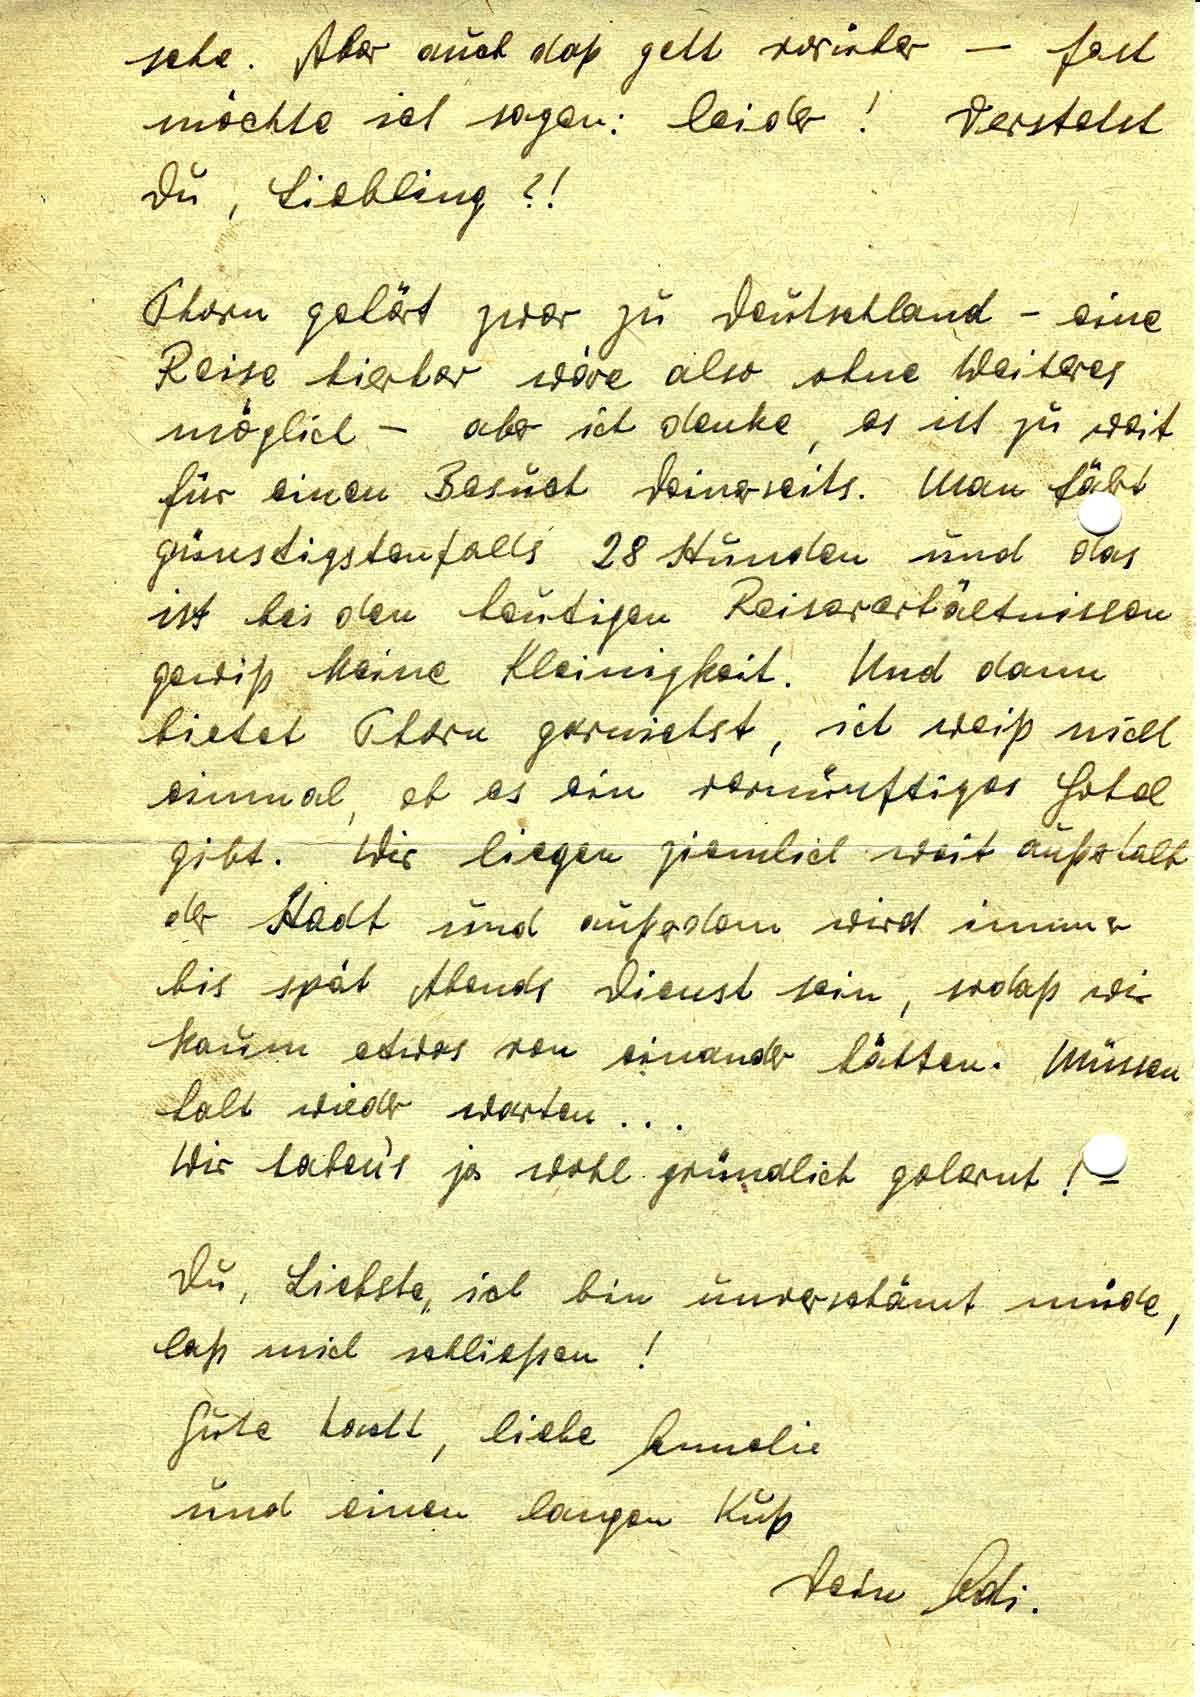 sehe. Aber auch daß geht vorüber – fast
möchte ich sagen: leider! Verstehst
Du, Liebling?!
Thorn gehört zwar zu Deutschland – eine
Reise hierher wäre also ohne Weiteres
möglich – aber ich denke, es ist zu weit
für einen Besuch Deinerseits. Man fährt
günstigstenfalls 28 Stunden und das
ist bei den heutigen Reiseverhältnissen
gewiß keine Kleinigkeit. Und dann
bietet Thorn garnichst, ich weiß nicht
einmal, ob es ein vernünftiges Hotel
gibt. Wir liegen ziemlich weit außerhalb
der Stadt und außerdem wird immer
bis spät Abends Dienst sein, sodaß wir
kaum etwas von einander hätten. Müssen
halt wieder warten...
Wir haben's ja wohl gründlich gelernt! –
Du, Liebste, ich bin unverschämt müde,
laß mich schließen!
Gute Nacht, liebe Annelie
und einen langen Kuß
Dein Adi.